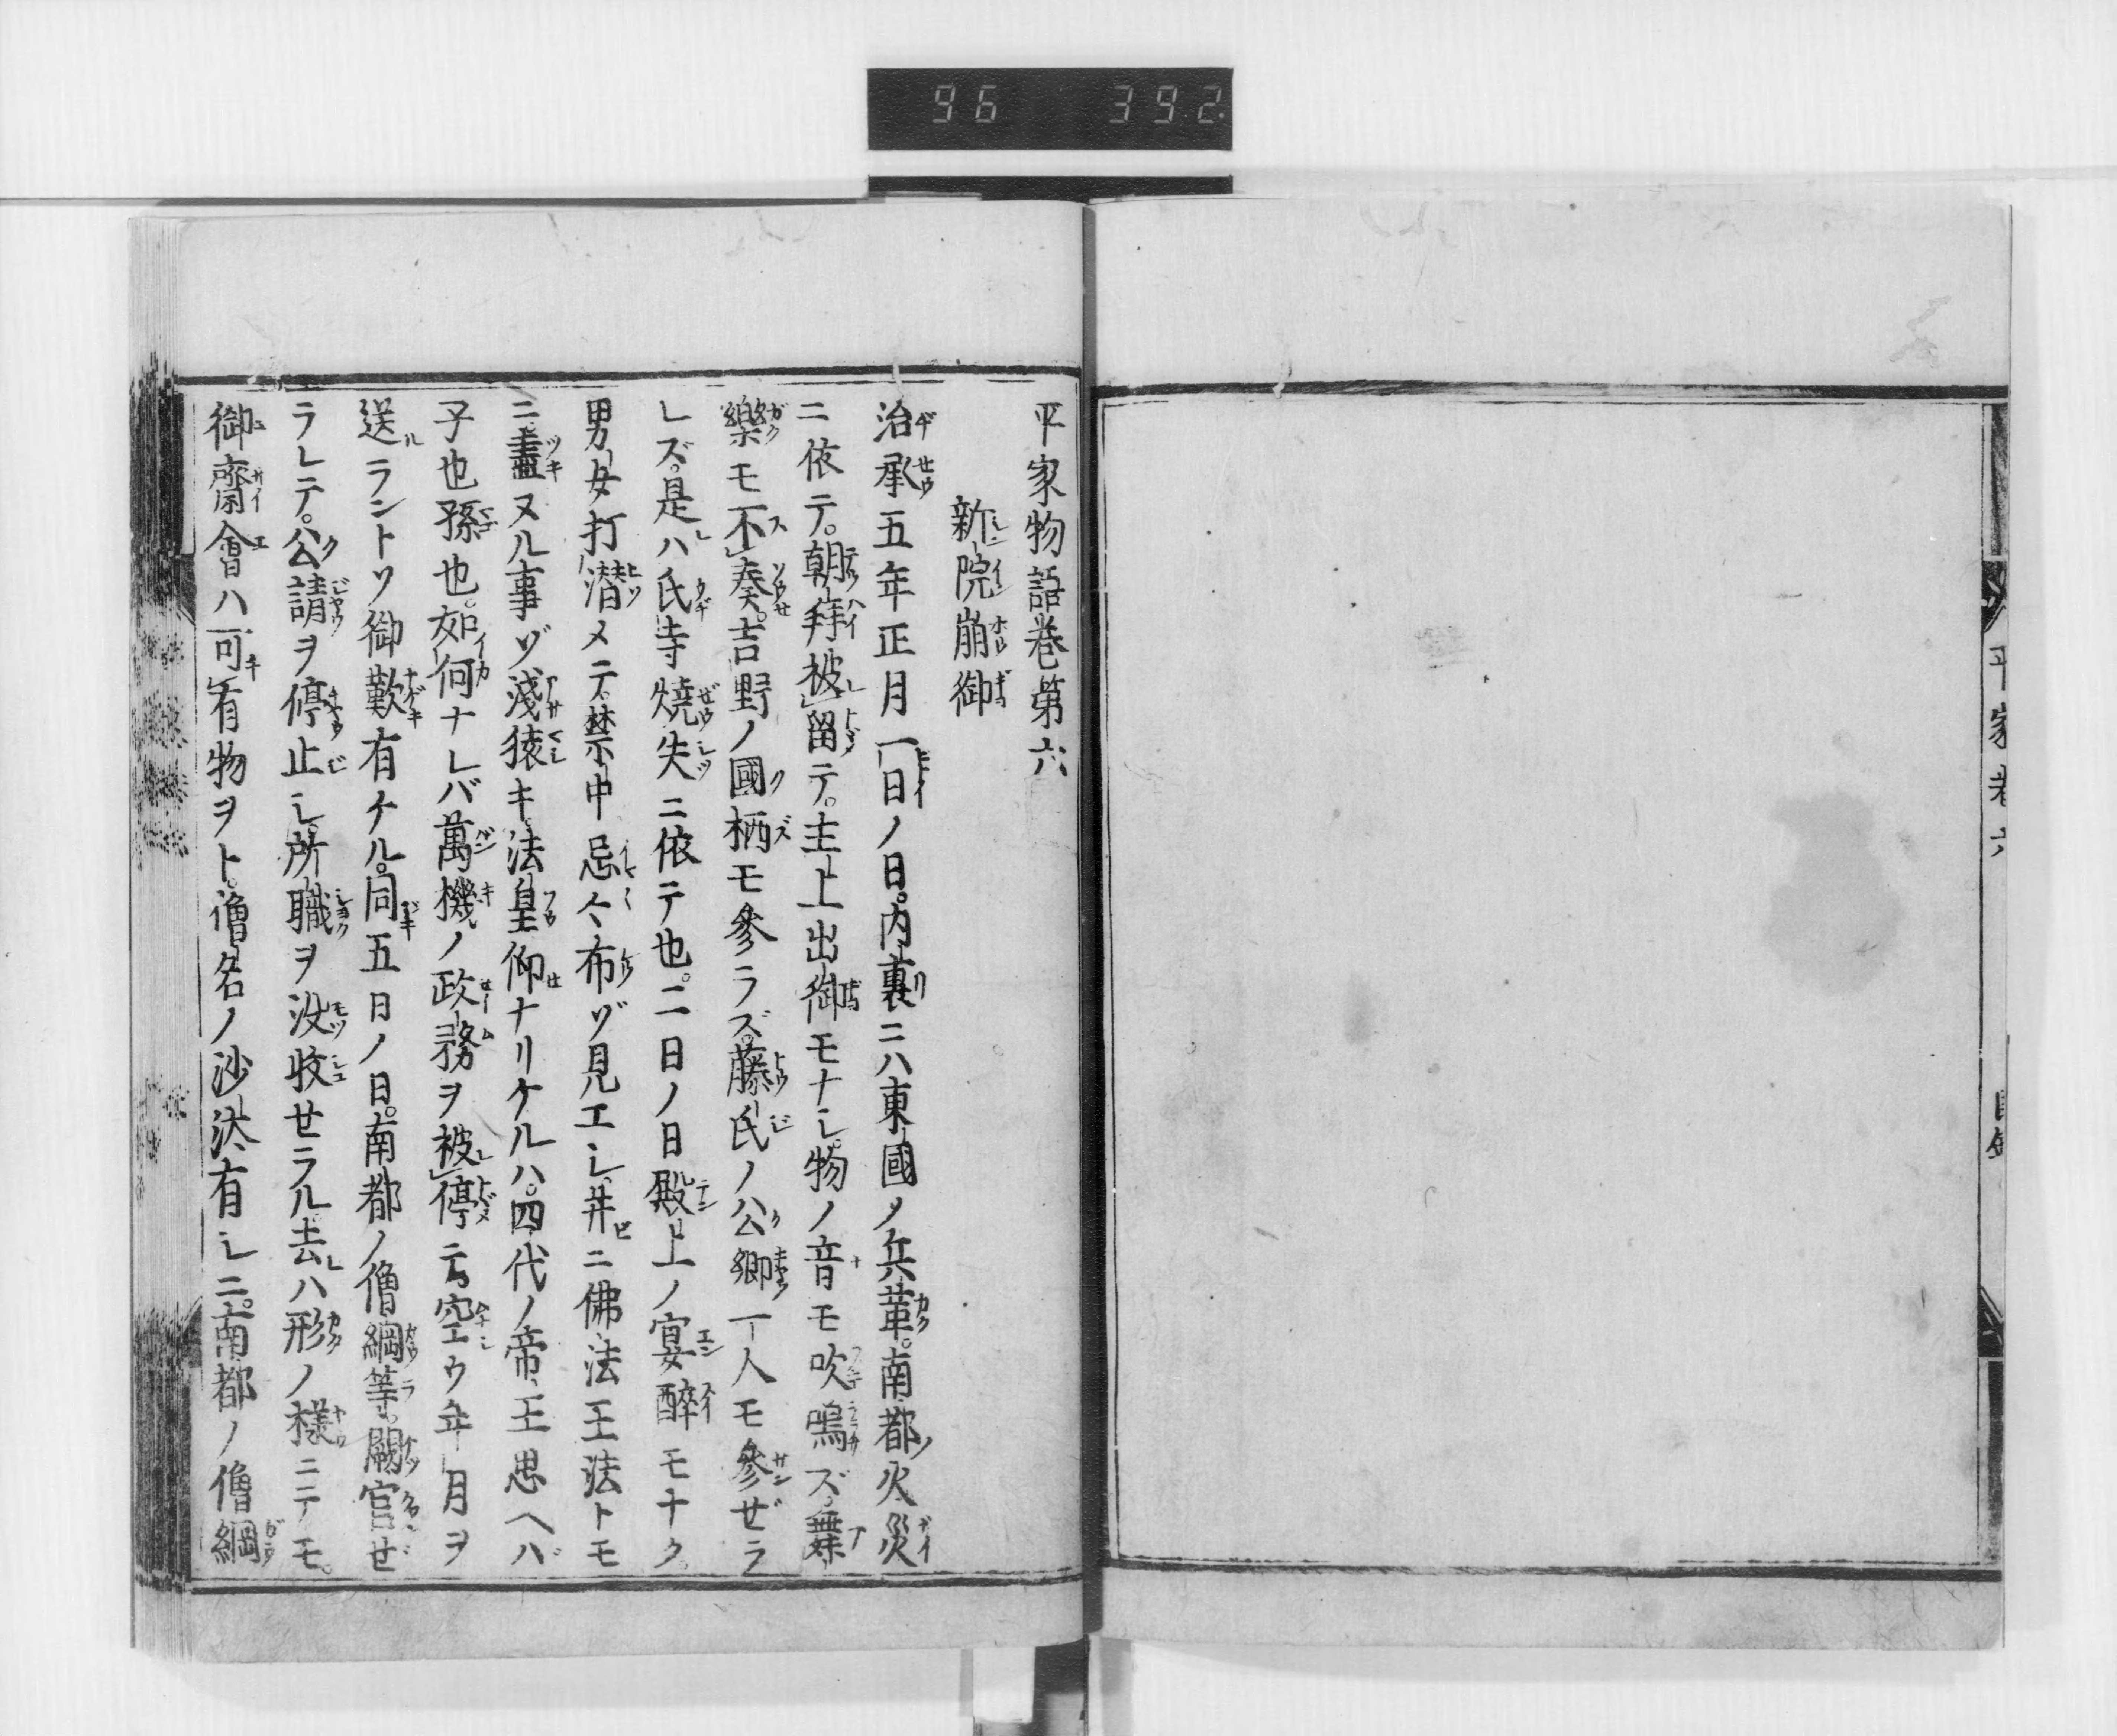 96 392
平家物語巻第六
新院崩御
治承五年正月一日ノ日。内裏ニハ東國ノ兵革。南都ノ火災
ニ依テ。朝拜被留テ。主上出御モナシ。物ノ音モ吹鳴ズ。舞
樂モ不奏。吉野ノ國栖モ參ラズ。藤氏ノ公卿一人モ參ぜラ
レズ。是ハ氏寺燒失ニ依テ也。二日ノ日殿上ノ宴醉モナク。
男女打潜メテ。禁中忌々布ゾ見エシ。并ニ佛法王法トモ
ニ盡ヌル事ゾ淺猿キ。法皇仰ナリケルハ。四代ノ帝王思ヘバ
子也孫也。如何ナレバ萬機ノ政務ヲ被停テ。空ウ年月ヲ
送ラントソ御歎有ケル。同五日ノ日。南都ノ僧綱等。闕官せ
ラレテ。公請ヲ停止シ。所職ヲ没收せラル。去ハ形ノ樣ニテモ。
御齋會ハ可有物ヲト。僧名ノ沙汰有シニ。南都ノ僧綱
平家巻六